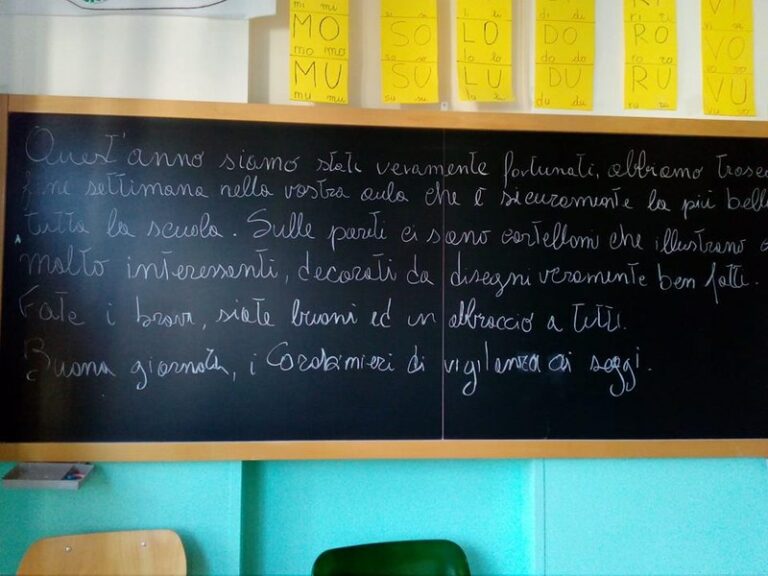 mi mi
MO
mo mo
MU
mu mu
SO
so so
SU
su su
li li
LO
lo lo
LU
lu lu
di di
DO
do do
DU
du du
ri ri
RO
ro ro
RU
ru ru
VI
vi vi
VO
vo vo
VU
vu vu
Quest'anno siamo stati veramente fortunati, abbiamo
fine settimana nella vostra aula che è sicuramente la più bell
tutta la scuola. Sulle pareti ci sono cartelloni che illustrano
molto interessanti, decorati da disegni veramente ben fatti.
Fate i bravi, siate buoni ed un abbraccio a tutti.
Buona giornata, i Carabinieri di vigilanza ai seggi.